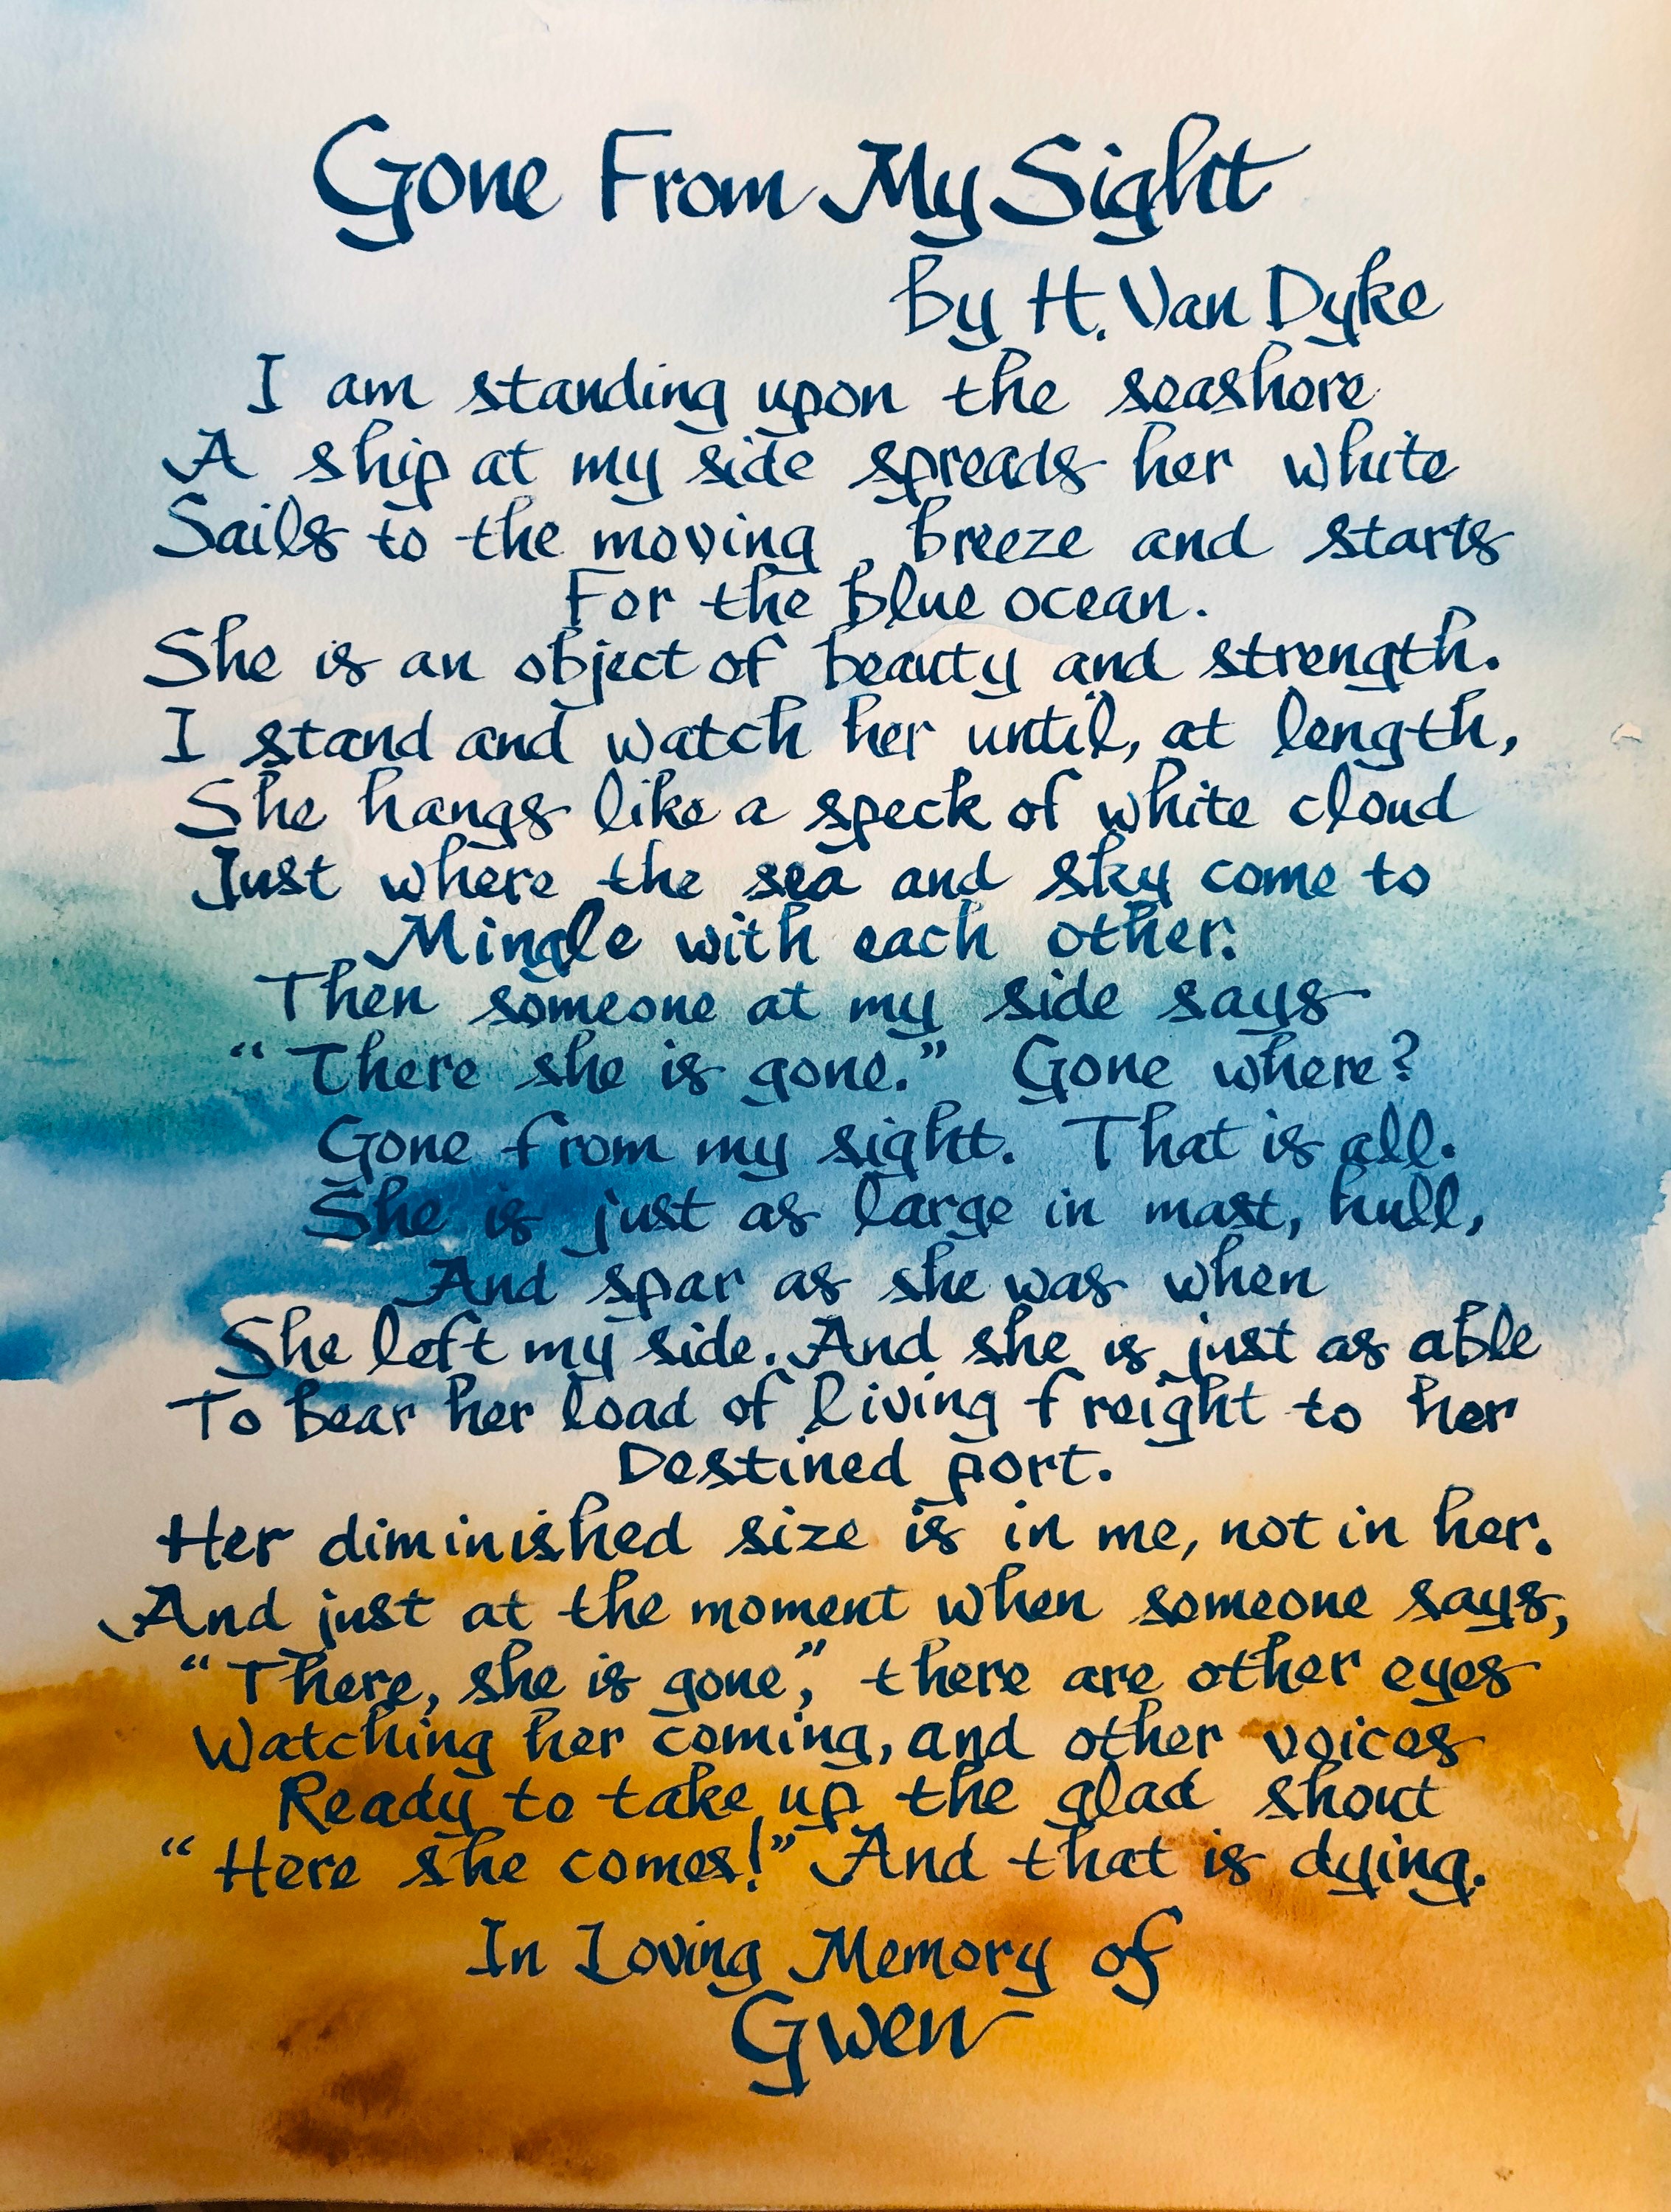 Gone From My Sight
By H. Van Dyke
I am standing upon the seashore
A ship at my side spreads her white
Sails to the moving breeze and starts
For the blue ocean.
She is an object of beauty and strength.
I stand and watch her until, at length,
She hangs like a speck of white cloud
Just where the sea and sky come to
Mingle with each other.
Then someone at my side says
“There she is gone.” Gone where?
Gone from my sight. That is all.
She is just as large in mast, hull,
And spar as she was when
She left my side. And she is just as able
To bear her load of living freight to her
Destined port.
Her diminished size is in me, not in her.
And just at the moment when someone says,
“There, she is gone,” there are other eyes
Watching her coming, and other voices
Ready to take up the glad shout
“Here she comes!” And that is dying.
In Loving Memory of
Gwen